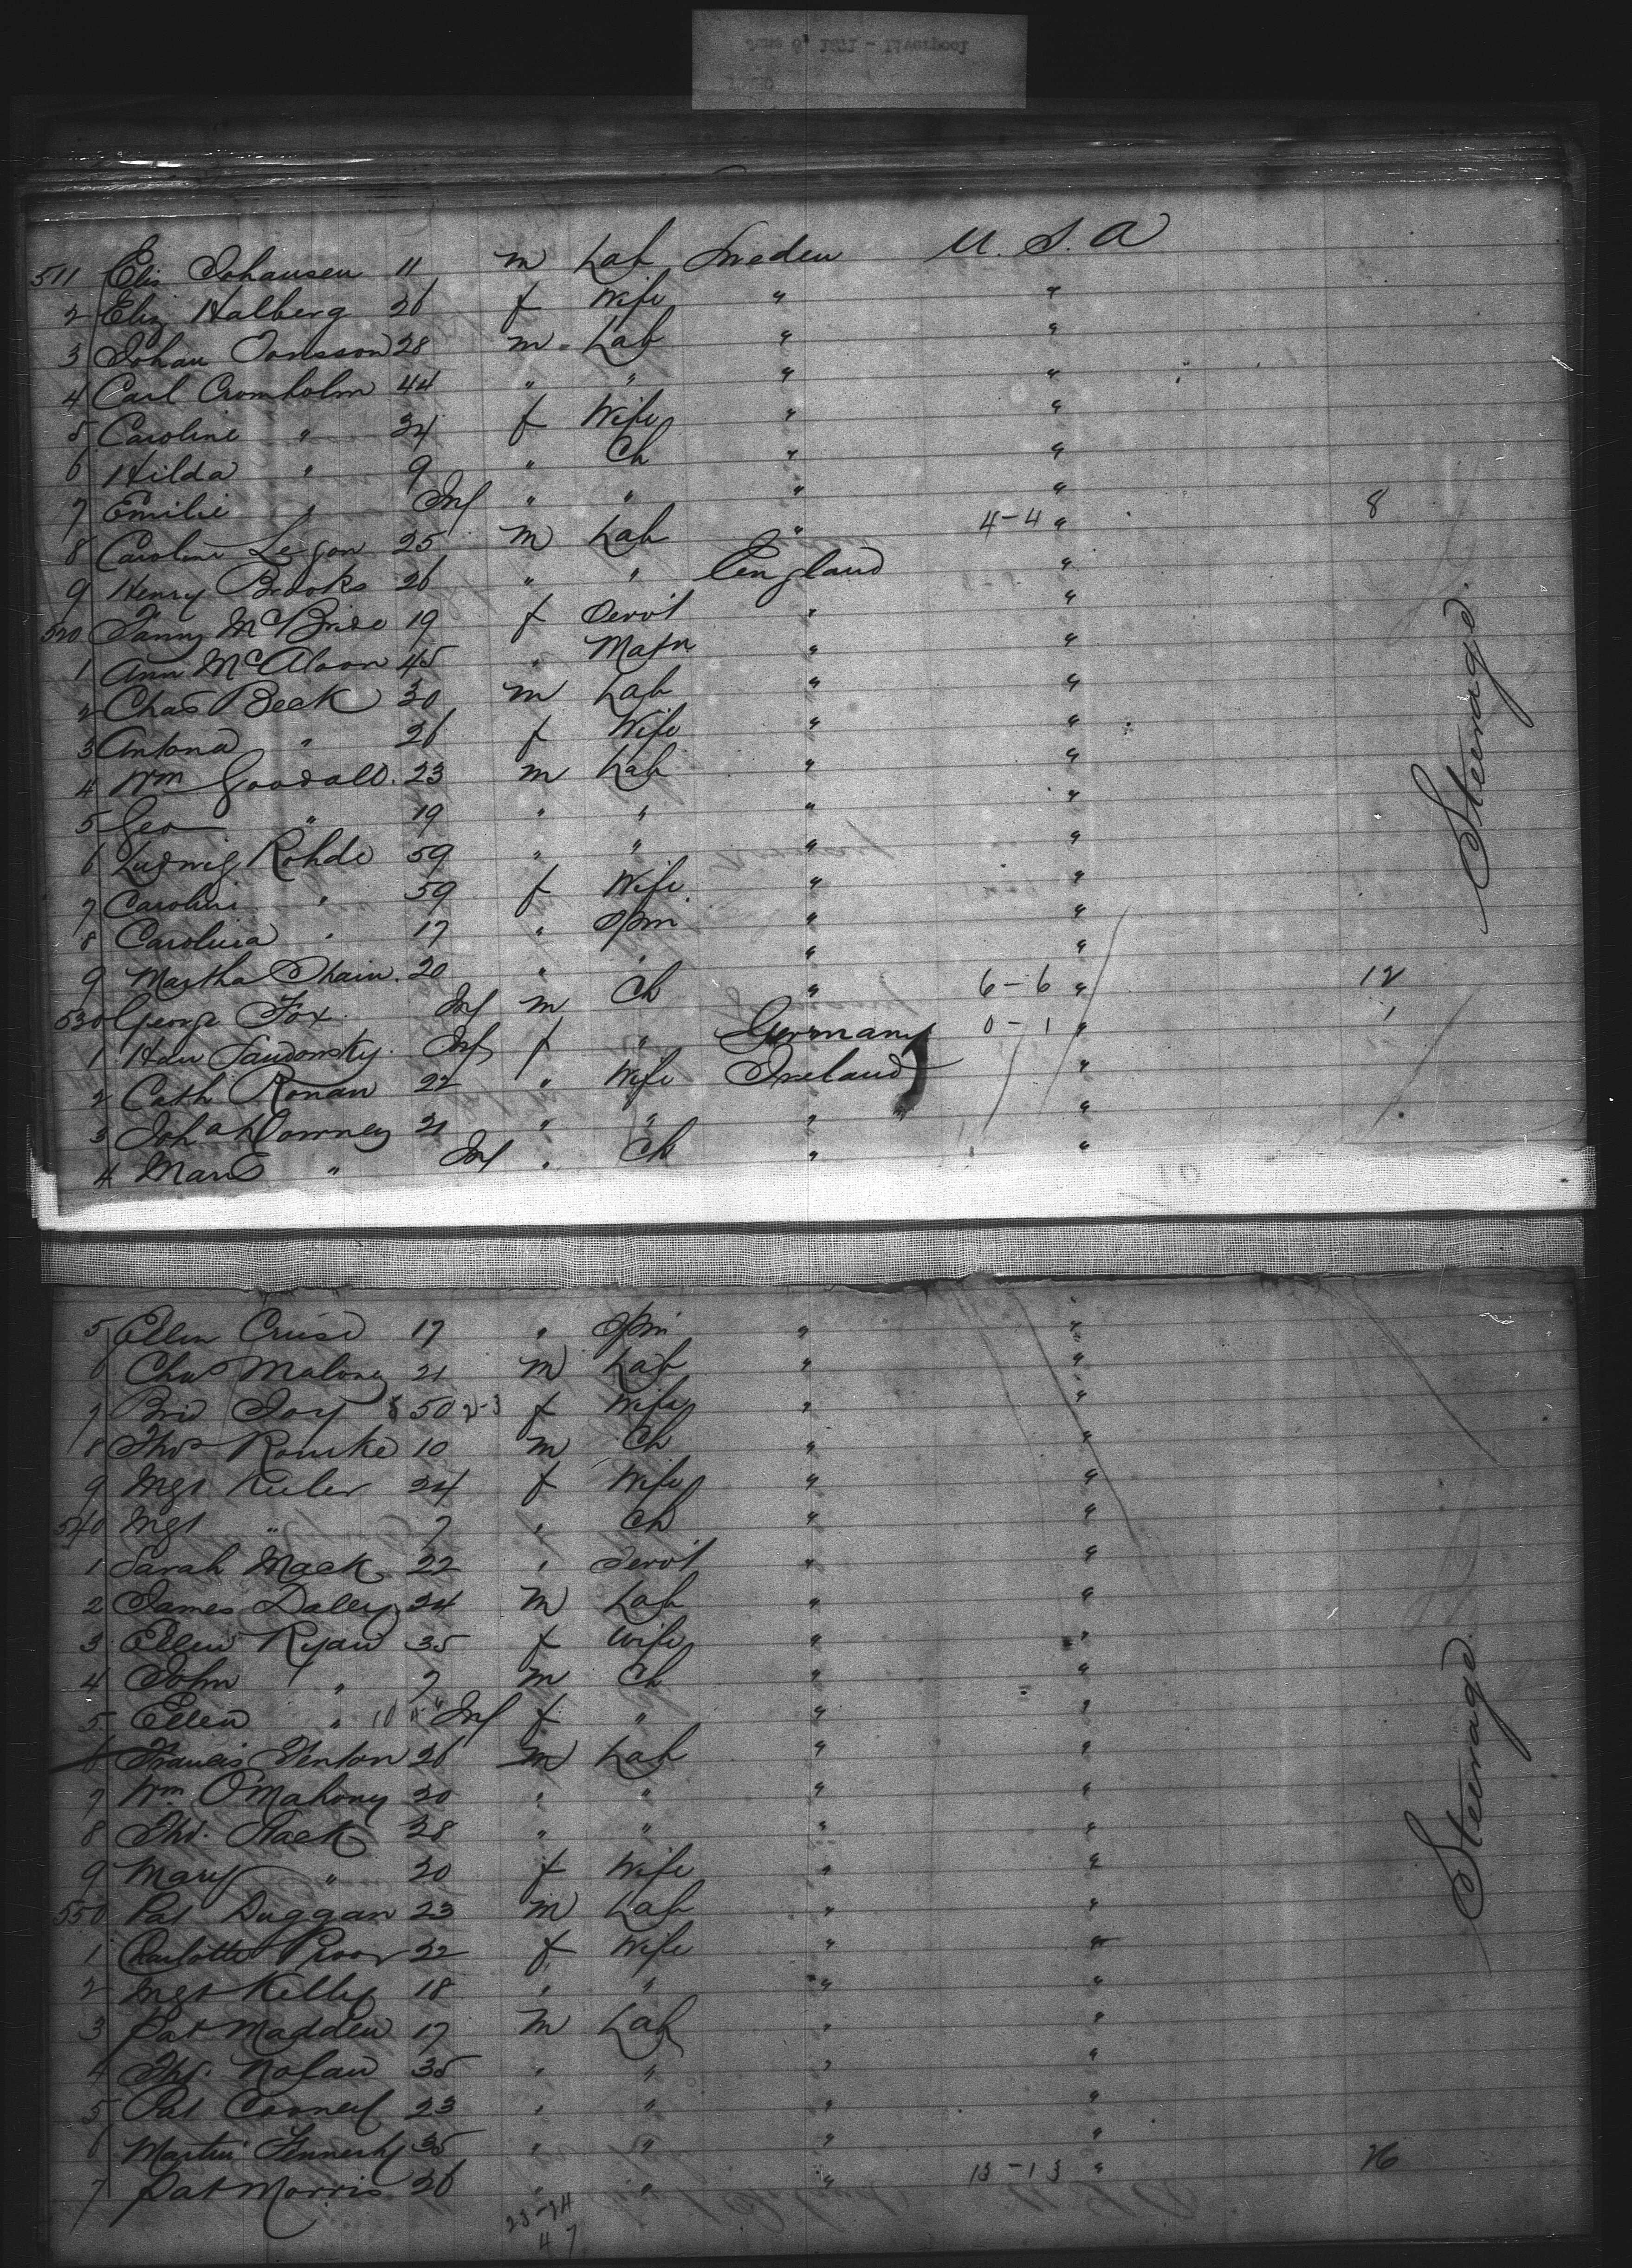 June 6, 1871 - Liverpool
511 Elis Johansen 11 m Lab Sweden U. S. A
2 Eliz Halberg 26 f Wife " "
3 Johan Jonsson 28 m Lab " "
4 Carl Cromholm 44 " " " "
5 Caroline " 34 f Wife " "
6 Hilda " 9 " Ch " "
7 Emilie " Inf " " " "
8 Caroline 25 m Lab " 4-4 " 8
9 Henry Brooks 26 " " England "
520 Fanny McBride 19 f Servt " "
1 Ann McAloon 45 " Matn " "
2 Chas Beck 30 m Lab " "
3 Antona " 26 f Wife " "
4 Wm Goodall 23 m Lab " "
5 Geo " 19 " " " "
6 Ludwig Rohde 59 " " " "
7 Caroline " 59 f Wife " "
8 Carolina " 17 " Spin " "
9 Martha 20 " " " "
530 George Fox Inf m Ch " 6-6 " 12
1 Inf f " Germany 0-1 " 1
2 Cath Ronan 22 " Wife Ireland "
3 Joh a Downey 21 " " " "
4 Mary " Inf " Ch " "
5 Ellen Cruise 17 " Spin " "
6 Chas Malony 21 m Lab " "
7 Brid Joy 50 2-3 f Wife " "
8 Thos Rourke 10 m Ch " "
9 Mgt Keeler 24 f Wife " "
540 Mgt " 7 " Ch " "
1 Sarah Mack 22 " Servt " "
2 James Daley 24 m Lab " "
3 Ellen Ryan 35 f Wife " "
4 John " 7 m Ch " "
5 Ellen " 10 " Inf f " " "
6 Francis Fenton 26 m Lab " "
7 Wm O'Mahony 20 " " " "
8 Tho. 28 " " " "
9 Mary " 20 f Wife " "
550 Pat Duggan 23 m Lab " "
1 Charlotte 32 f Wife " "
2 Mgt Kelly 18 " " " "
3 Pat Madden 17 m Lab " "
4 Tho. Nolan 35 " " " "
5 Pat 23 " " " "
6 Martin 35 " " " "
7 Pat Morris 26 " " " 13-13 " 26
23-24
47
Steerage
Steerage